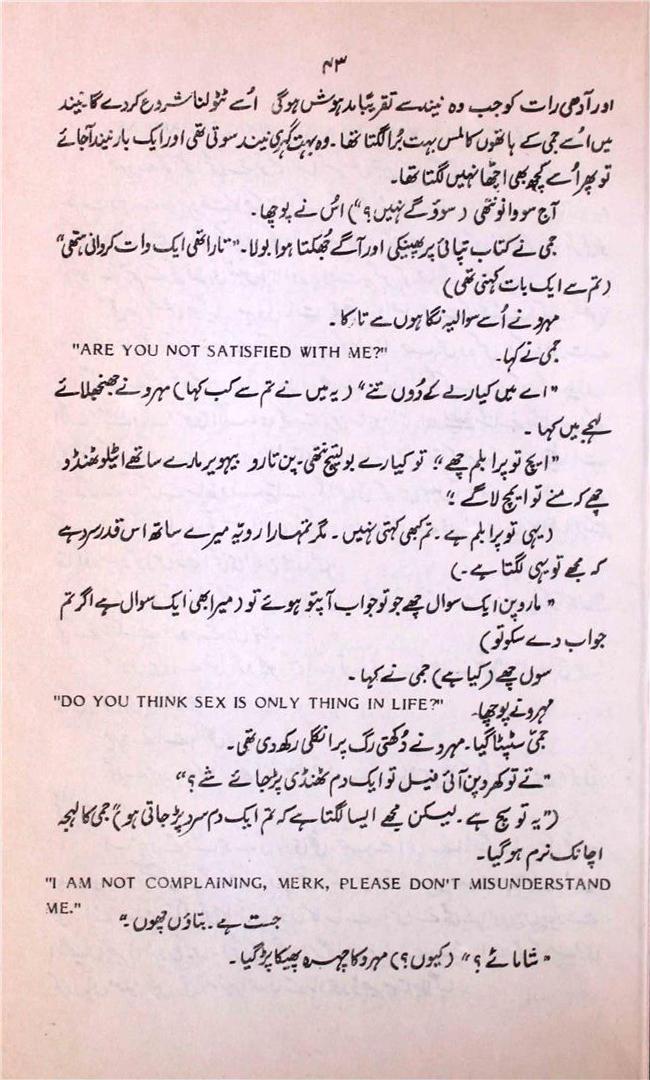 ۴۳
اور آدھی رات کو جب وہ نیند سے تقریباً مدہوش ہوگی اُسے ٹٹولنا شروع کردے گا۔ نیند
میں اُسے جمی کے ہاتھوں کا لمس بہت بُرا لگتا تھا۔ وہ بہت گہری نیند سوتی تھی اور ایک بار نیند آجائے
تو پھر اُسے کچھ بھی اچھا نہیں لگتا تھا۔
آج سووانو نتھی (سوؤگے نہیں؟“) اُس نے پوچھا۔
جمی نے کتاب تپائی پر پھینکی اور آگے جُھکتا ہوا بولا۔ ”تاراتھی ایک وات کروانی ہتھی“
(تم سے ایک بات کہنی تھی)
مہرو نے اُسے سوالیہ نگاہوں سے تاکا۔
جمی نے کہا۔ "ARE YOU NOT SATISFIED WITH ME?"
”اے میں کیارے کے دُوں تنے“ (یہ میں نے تم سے کب کہا) مہرو نے جھنجھلائے
لہجے میں کہا۔
”ایچ تو پرابلم چھے“؛ تو کیارے بولتیج نتھی۔ پن تارو بیہویر مارے ساتھے اٹیلو ٹھنڈو
چھے کہ منے تو ایچ لاگے“؛
(یہی تو پرابلم ہے۔ تم کبھی کہتی نہیں۔ مگر تمہارا رویہ میرے ساتھ اس قدر سرد ہے
کہ مجھے تو یہی لگتا ہے۔)
”مارو پن ایک سوال چھے جو تو جواب آپتو ہوئے تو (میرا بھی ایک سوال ہے اگر تم
جواب دے سکو تو)
سول چھے (کیا ہے) جمی نے کہا۔
مہرو نے پوچھا۔ "DO YOU THINK SEX IS ONLY THING IN LIFE?"
جمی سٹپٹا گیا۔ مہرو نے دُکھتی رگ پر انگلی رکھ دی تھی۔
”تے تو کھرو پن آئی فیل تو ایک دم ٹھنڈی پڑ جائے شے؟“
(”یہ تو سچ ہے۔ لیکن مجھے ایسا لگتا ہے کہ تم ایک دم سرد پڑ جاتی ہو)“ جمی کا لہجہ
اچانک نرم ہوگیا۔
"I AM NOT COMPLAINING, MERK, PLEASE DON'T MISUNDERSTAND
ME." جست ہے۔ بتاؤں چھوں۔“
”شاماٹے؟“ (کیوں؟) مہرو کا چہرہ پھیکا پڑ گیا۔